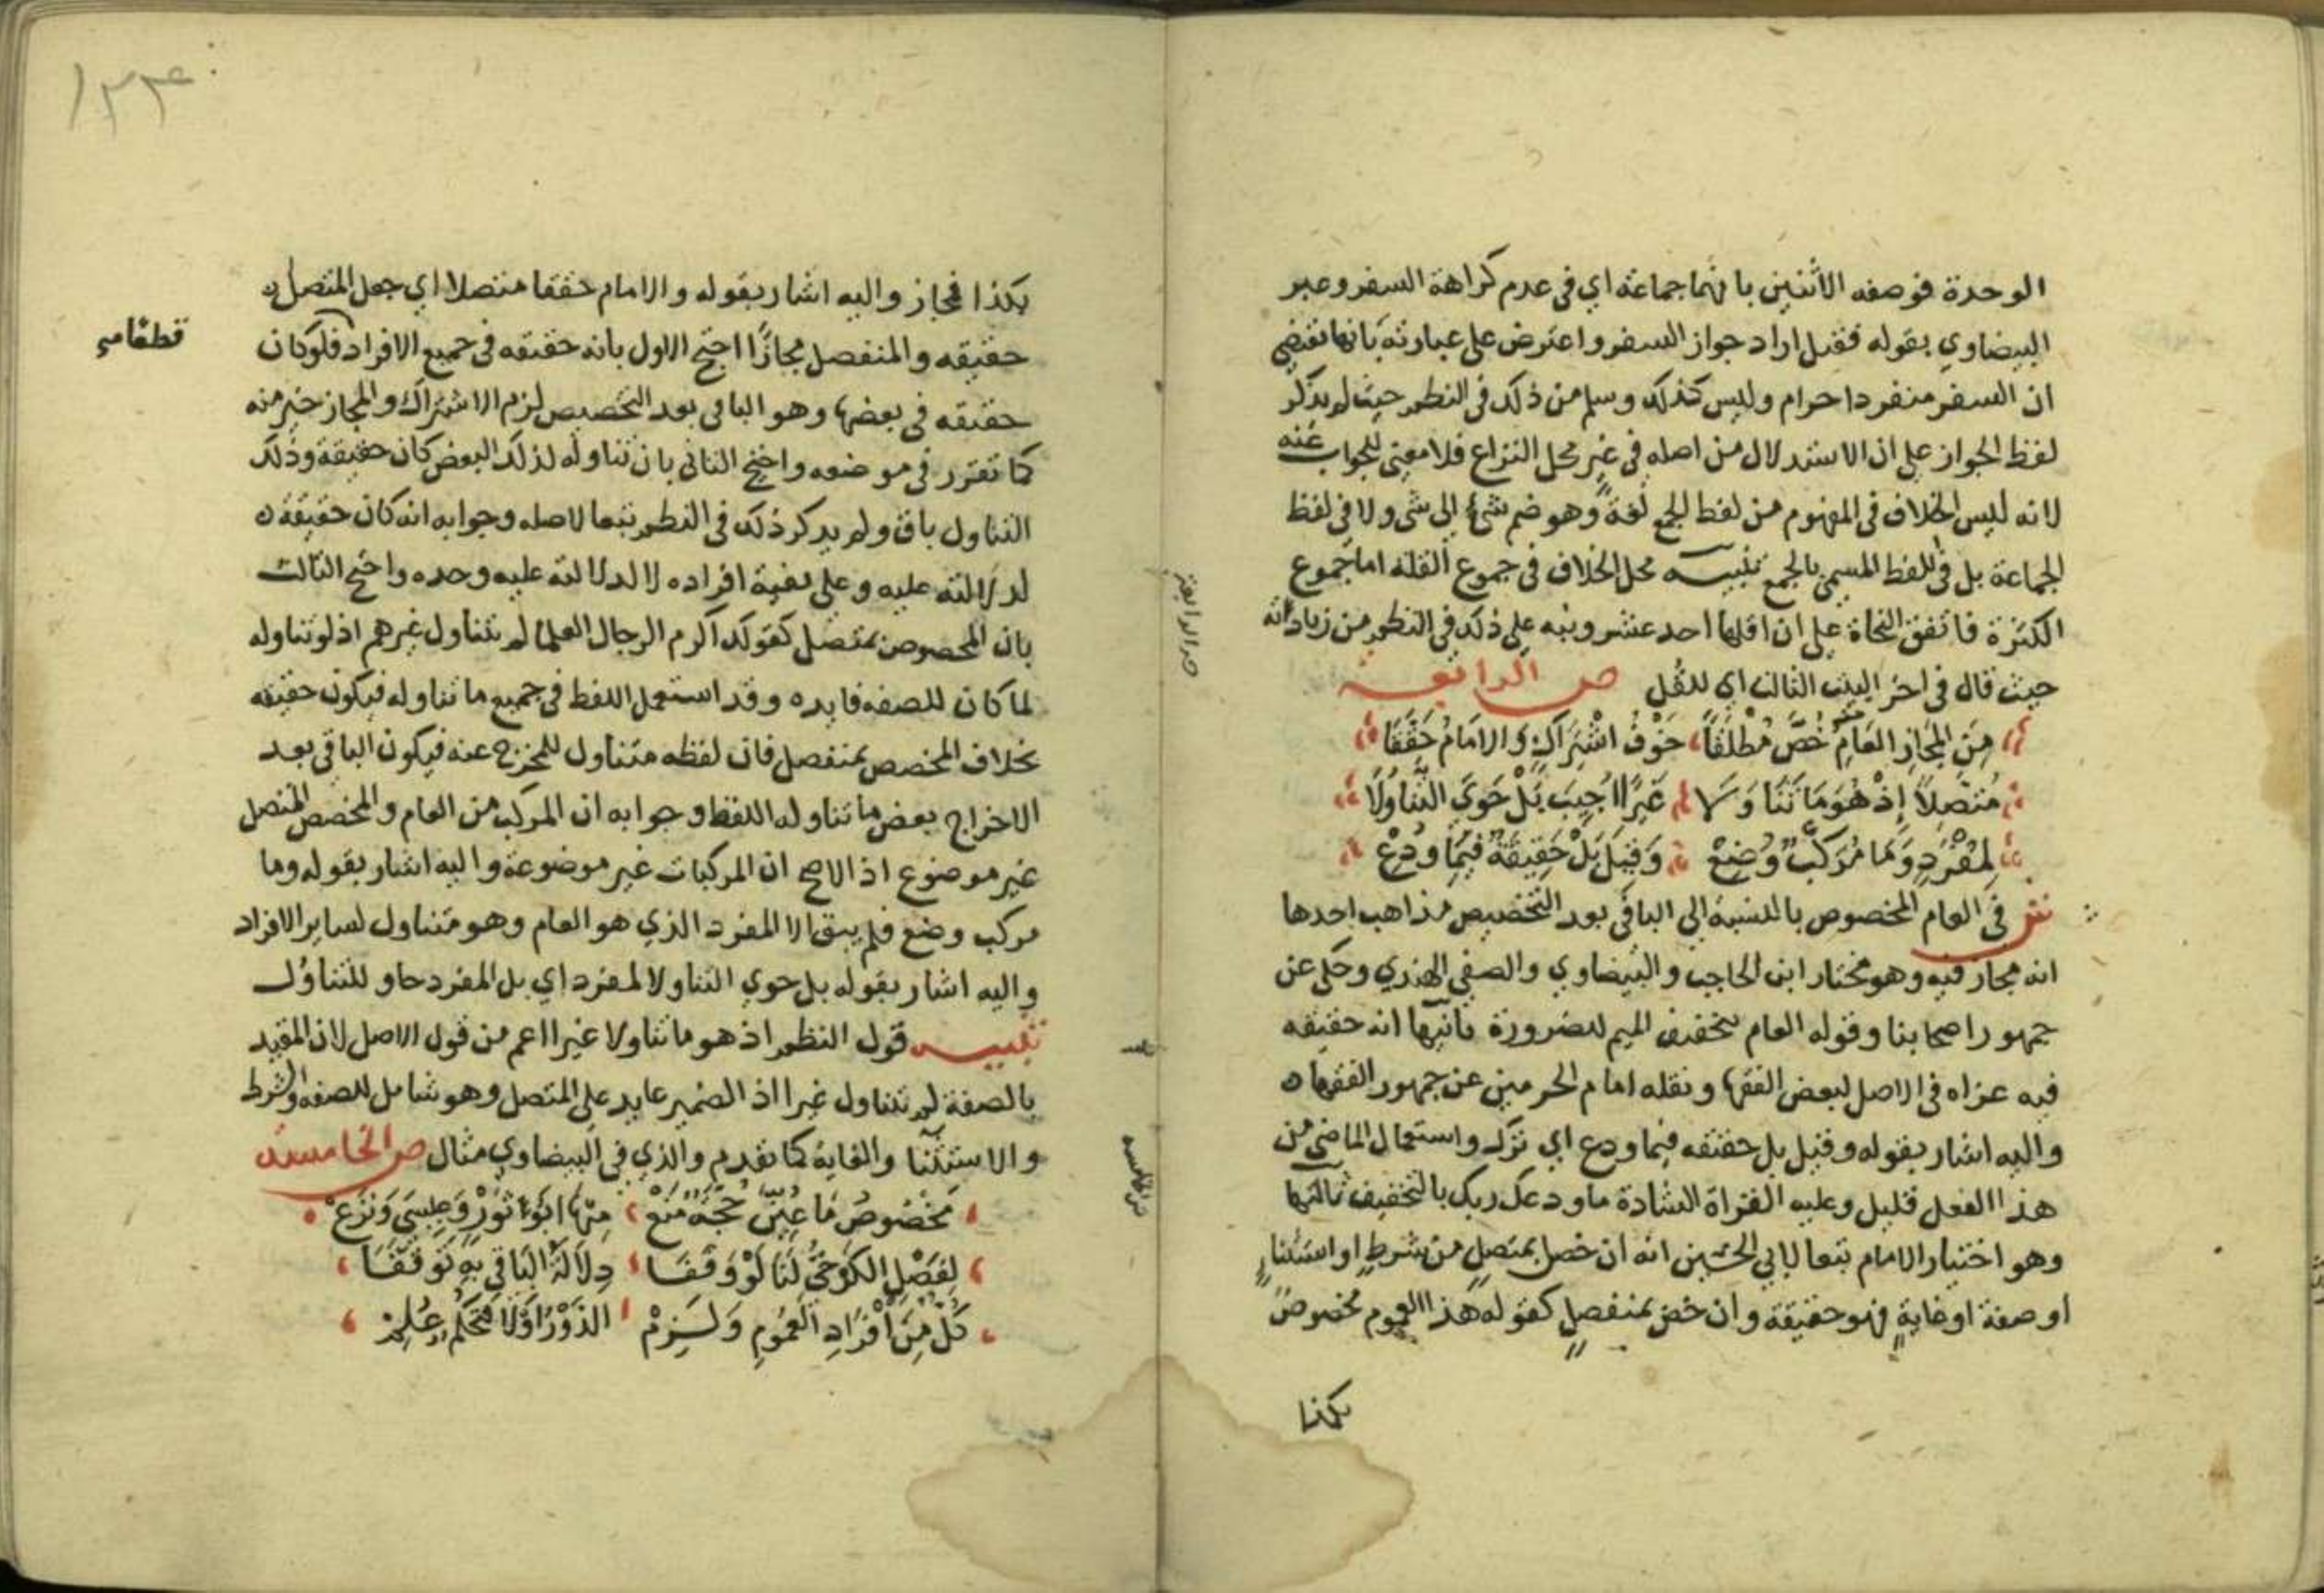 الوحدة فوصفه الاثنين بانهما جماعة اي في عدم كراهة السفر وعبر
البيضاوي بقوله فقيل اراد جواز السفر واعترض على عبارته بانها تقتضي
ان السفر منفردا حرام وليس كذلك وسلم من ذلك في النظم حيث لم يذكر
لفظ الجواز على ان الاستدلال من اصله في غير محل النزاع فلا معنى للجواب عنه
لانه ليس الخلاف في المفهوم من لفظ الجمع لغة وهو ضم شئ الى شى ولا في لفظ
الجماعة بل في اللفظ المسمى بالجمع تنبيه محل الخلاف في جموع القلة اما جموع
الكثرة فاتفق النحاة على ان اقلها احد عشر ونبه على ذلك في النظم من زياداته
حيث قال في اخر البيت الثالث اي للقل ص الرابعة
مِنَ المَجَازِ العَامِ خُصَّ مُطْلَقًا خَوْفُ اشْتِرَاكٍ وَالامَامُ حَقَّقَا
مُتَّصِلاً إِذْ هُوَ مَا تَنَاوَلَا غَيرًا اُجِيبَ بَلْ حَوَى التَّنَاوُلَا
لِمُفْرَدٍ وَمَا مُرَكَّبٌ وُضِعْ وَقِيلَ بَلْ حَقِيقَةٌ فِيمَا وُدِعْ
ش في العام المخصوص بالنسبة الى الباقي بعد التخصيص مذاهب احدها
انه مجاز فيه وهو مختار ابن الحاجب والبيضاوي والصفي الهندي وحكى عن
جمهور اصحابنا وقوله العام بتخفيف الميم للضرورة ثانيها انه حقيقه
فيه عزاه في الاصل لبعض الفقها ونقله امام الحرمين عن جمهور الفقها
واليه اشار بقوله وقيل بل حقيقه فيما ودع اي ترك واستعمال الماضي من
هذا الفعل قليل وعليه القراة الشادة ما ودعك ربك بالتخفيف ثالثها
وهو اختيار الامام تبعا لابي الحسين انه ان خص بمتصل من شرط او استثنا
او صفة او غاية فهو حقيقة وان خص بمنفصل كقوله هذا العموم مخصوص
بكذا
بكذا فمجاز واليه اشار بقوله والامام حققا متصلا اي جعل المتصل
حقيقه والمنفصل مجازًا احتج الاول بانه حقيقه في جميع الافراد فلو كان
حقيقه في بعضها وهو الباقي بعد التخصيص لزم الاشتراك والمجاز خير منه
كما تقرر في موضعه واحتج الثاني بان تناوله لذلك البعض كان حقيقة وذلك
التناول باق ولم يذكر ذلك في النظم تبعا لاصله وجوابه انه كان حقيقة
لدلالته عليه وعلى بقية افراده لا لدلالته عليه وحده واحتج الثالث
بان المخصوص بمتصل كقولك اكرم الرجال العلما لم يتناول غيرهم اذ لو تناوله
لما كان للصفه فايده وقد استعمل اللفظ في جميع ما تناوله فيكون حقيقه
بخلاف المخصص بمنفصل فان لفظه متناول للمخرج عنه فيكون الباقي بعد
الاخراج بعض ما تناوله اللفظ وجوابه ان المركب من العام والمخصص المتصل
غير موضوع اذ الاصح ان المركبات غير موضوعة واليه اشار بقوله وما
مركب وضع فلم يبق الا المفرد الذي هو العام وهو متناول لساير الافراد
واليه اشار بقوله بل حوي التناولا لمفرد اي بل المفرد حاو للتناول
تنبيه قول النظم اذ هو ما تناولا غيرا اعم من قول الاصل لان المقيد
بالصفة لم تتناول غيرا اذ الضمير عايد على المتصل وهو شامل للصفه والشرط
والاستثنا والغاية كما تقدم والذي في البيضاوي مثال ص الخامسة
مَخْصُوصُ مَا عُيِّنَ حُجَّةً مَنَعْ مِنْهَا ابُو ثَوْرٍ وَعِيسَى وَنَزَعْ
لِفَصْلِ الكَرْخِيُّ لَنَا لَوْ وَقَفَا دِلَالَةُ البَاقِي بِهِ تَوَقَّفَا
كُلٌّ مِنَ افْرَادِ العُمُومِ وَلَزِمْ الدَّوْرُ اوْ لَا فَتَحَكُّمٌ عُلِمْ